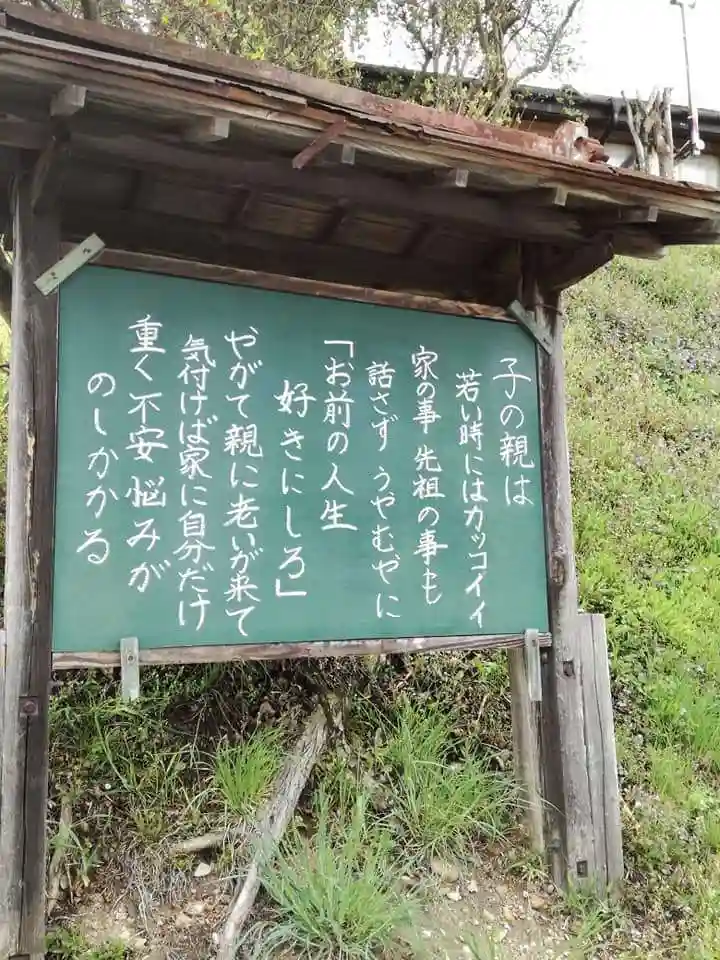 子の親は
若い時にはカッコイイ
家の事先祖の事も
話さず うやむやに
「お前の人生
好きにしろ」
やがて親に老いが来て
気付けば家に自分だけ
重く不安悩みが
のしかかる